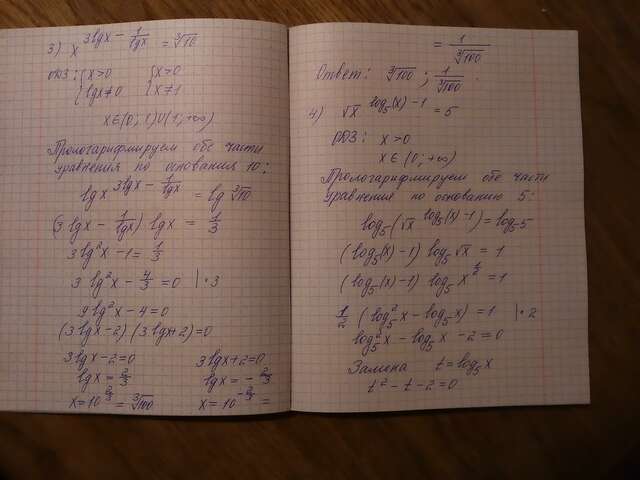 3) x^(3lgx − 1/lgx) = ∛10
ОДЗ: { x>0 { x>0
{ lgx≠0 { x≠1
x∈(0; 1)∪(1; +∞)
Прологарифмируем обе части
уравнения по основания 10:
lg x^(3lgx − 1/lgx) = lg ∛10
(3lgx − 1/lgx) lgx = 1/3
3lg²x − 1 = 1/3
3lg²x − 4/3 = 0 | · 3
9lg²x − 4 = 0
(3lgx−2)(3lgx+2)=0
3lgx−2=0 3lgx+2=0
lgx = 2/3 lgx = −2/3
x=10^(2/3) = ∛100 x=10^(−2/3) =
= 1/∛100
Ответ: ∛100 ; 1/∛100
4) √x^(log₅(x)−1) = 5
ОДЗ: x>0
x∈(0; +∞)
Прологарифмируем обе части
уравнения по основанию 5:
log₅(√x^(log₅(x)−1)) = log₅5
(log₅(x)−1) log₅√x = 1
(log₅(x)−1) log₅x^(1/2) = 1
1/2 (log₅²x − log₅x) = 1 | · 2
log₅²x − log₅x − 2 = 0
Замена t = log₅x
t² − t − 2 = 0